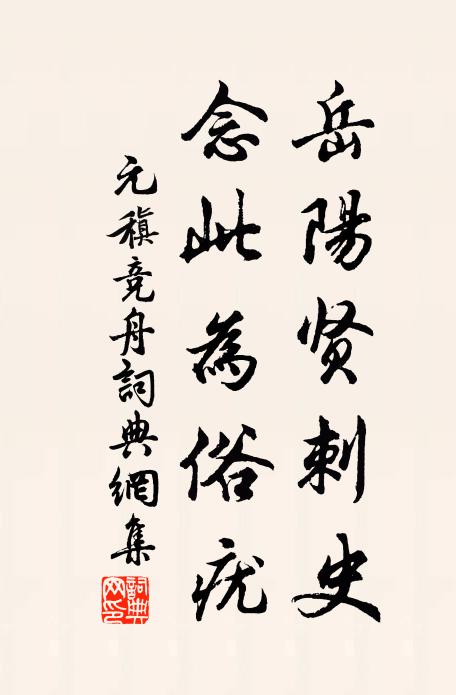 岳陽贤刺史
念此為俗疣
元稹竞舟詞典網集
詞典网印